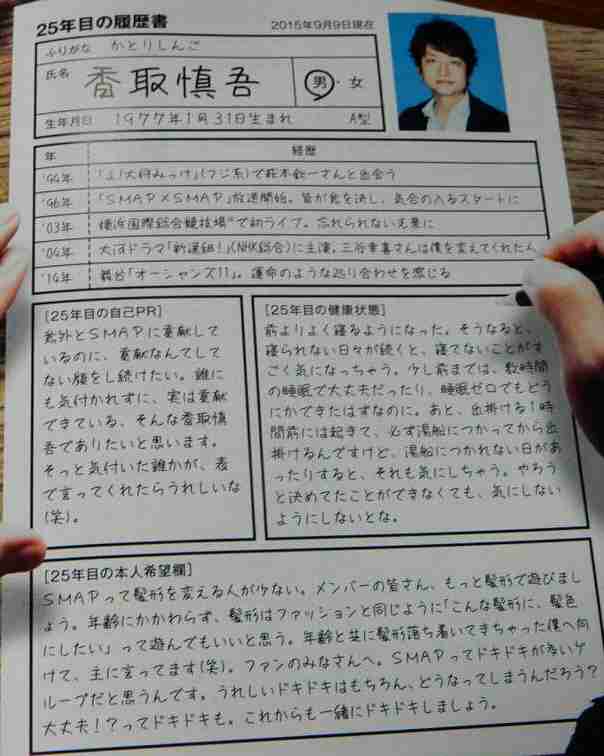 25年目の履歴書
2015年9月9日現在
ふりがな かとりしんご
氏名 香取慎吾 男・女
生年月日 1977年1月31日生まれ A型
年 経歴
'94年 「よ!大将みっけ」(フジ系)で萩本欽一さんと出会う
'96年 「SMAP×SMAP」放送開始。皆が意を決し、気合の入るスタートに
'03年 横浜国際総合競技場*で初ライブ。忘れられない光景に
'04年 大河ドラマ「新選組!」(NHK総合)に主演。三谷幸喜さんは僕を変えてくれた人
'14年 舞台「オーシャンズ11」。運命のような巡り合わせを感じる
[25年目の自己PR]
意外とSMAPに貢献して
いるのに、貢献なんてして
ない顔をし続けたい。誰に
も気付かれずに、実は貢献
できている、そんな香取慎
吾でありたいと思います。
そっと気付いた誰かが、表
で言ってくれたらうれしいな
(笑)。
[25年目の健康状態]
前よりよく寝るようになった。そうなると、
寝られない日々が続くと、寝てないことがす
ごく気になっちゃう。少し前までは、数時間
の睡眠で大丈夫だったり、睡眠ゼロでもどう
にかできたはずなのに。あと、出掛ける1時
間前には起きて、必ず湯船につかってから出
掛けるんですけど、湯船につかれない日があ
ったりすると、それも気にしちゃう。やろう
と決めてたことができなくても、気にしない
ようにしないとな。
[25年目の本人希望欄]
SMAPって髪形を変える人が少ない。メンバーの皆さん、もっと髪形で遊びまし
ょう。年齢にかかわらず、髪形はファッションと同じように「こんな髪形に、髪色
にしたい」って遊んでもいいと思う。年齢と共に髪形落ち着いてきちゃった僕へ向
けて、主に言ってます(笑)。ファンのみなさんへ。SMAPってドキドキが多いグ
ループだと思うんです。うれしいドキドキはもちろん、どうなってしまうんだろう?
大丈夫!?ってドキドキも。これからも一緒にドキドキしましょう。